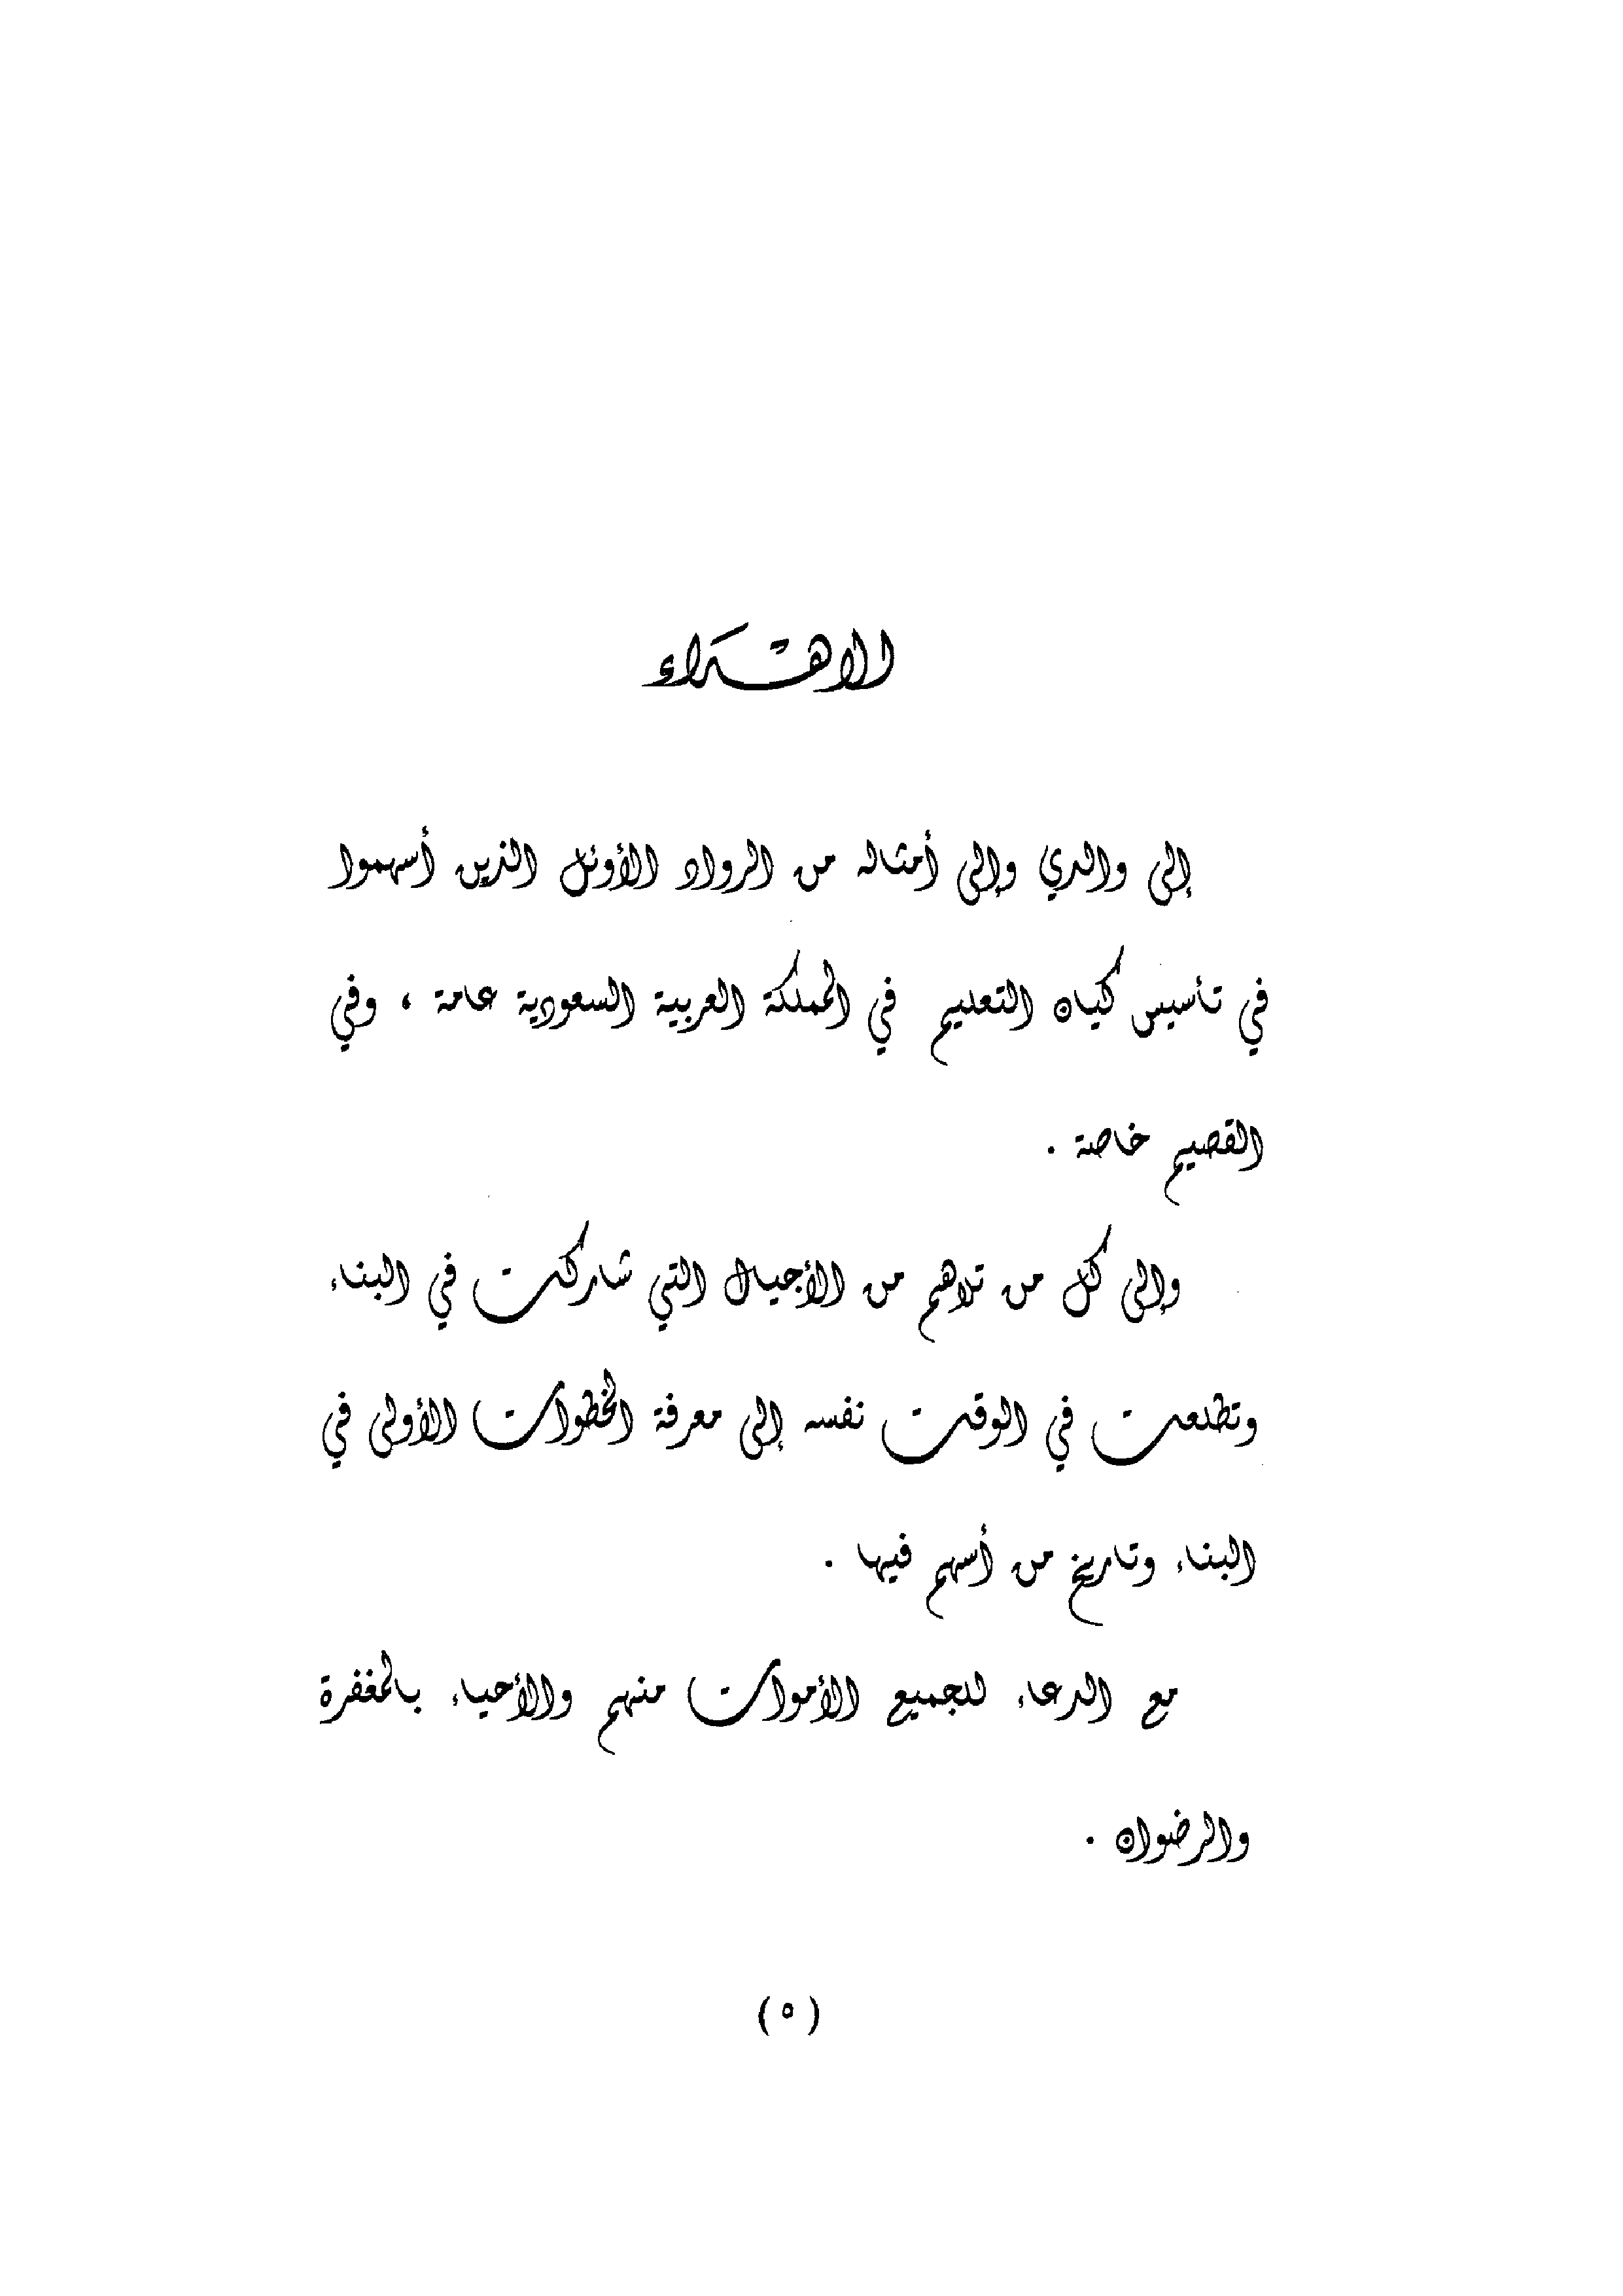 الاهداء
إلى والدي وإلى أمثاله من الرواد الأوئل الذين أسهموا
في تأسيس كيان التعليم في المملكة العربية السعودية عامة ، وفي
القصيم خاصة .
وإلى كل من تلاهم من الأجيال التي شاركت في البناء
وتطلعت في الوقت نفسه إلى معرفة الخطوات الأولى في
البناء وتاريخ من أسهم فيها .
مع الدعاء للجميع الأموات منهم والأحياء بالمغفرة
والرضوان .
( ٥ )